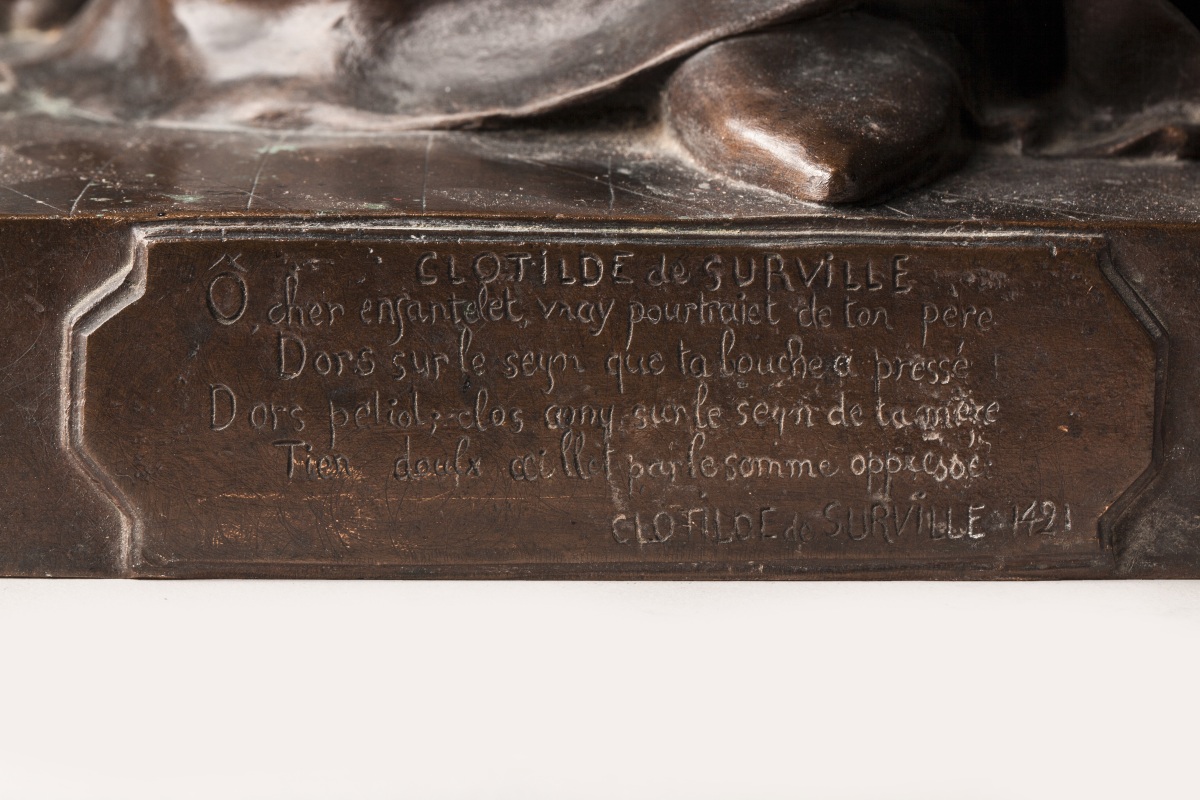 CLOTILDE de SURVILLE
Ô cher enfantelet, vray pourtraict de ton père
Dors sur le seyn que ta bouche a pressé !
Dors petiot; clos amy, sur le seyn de ta mère
Tien doulx œillet par le somme oppressé!
CLOTILDE de SURVILLE 1421